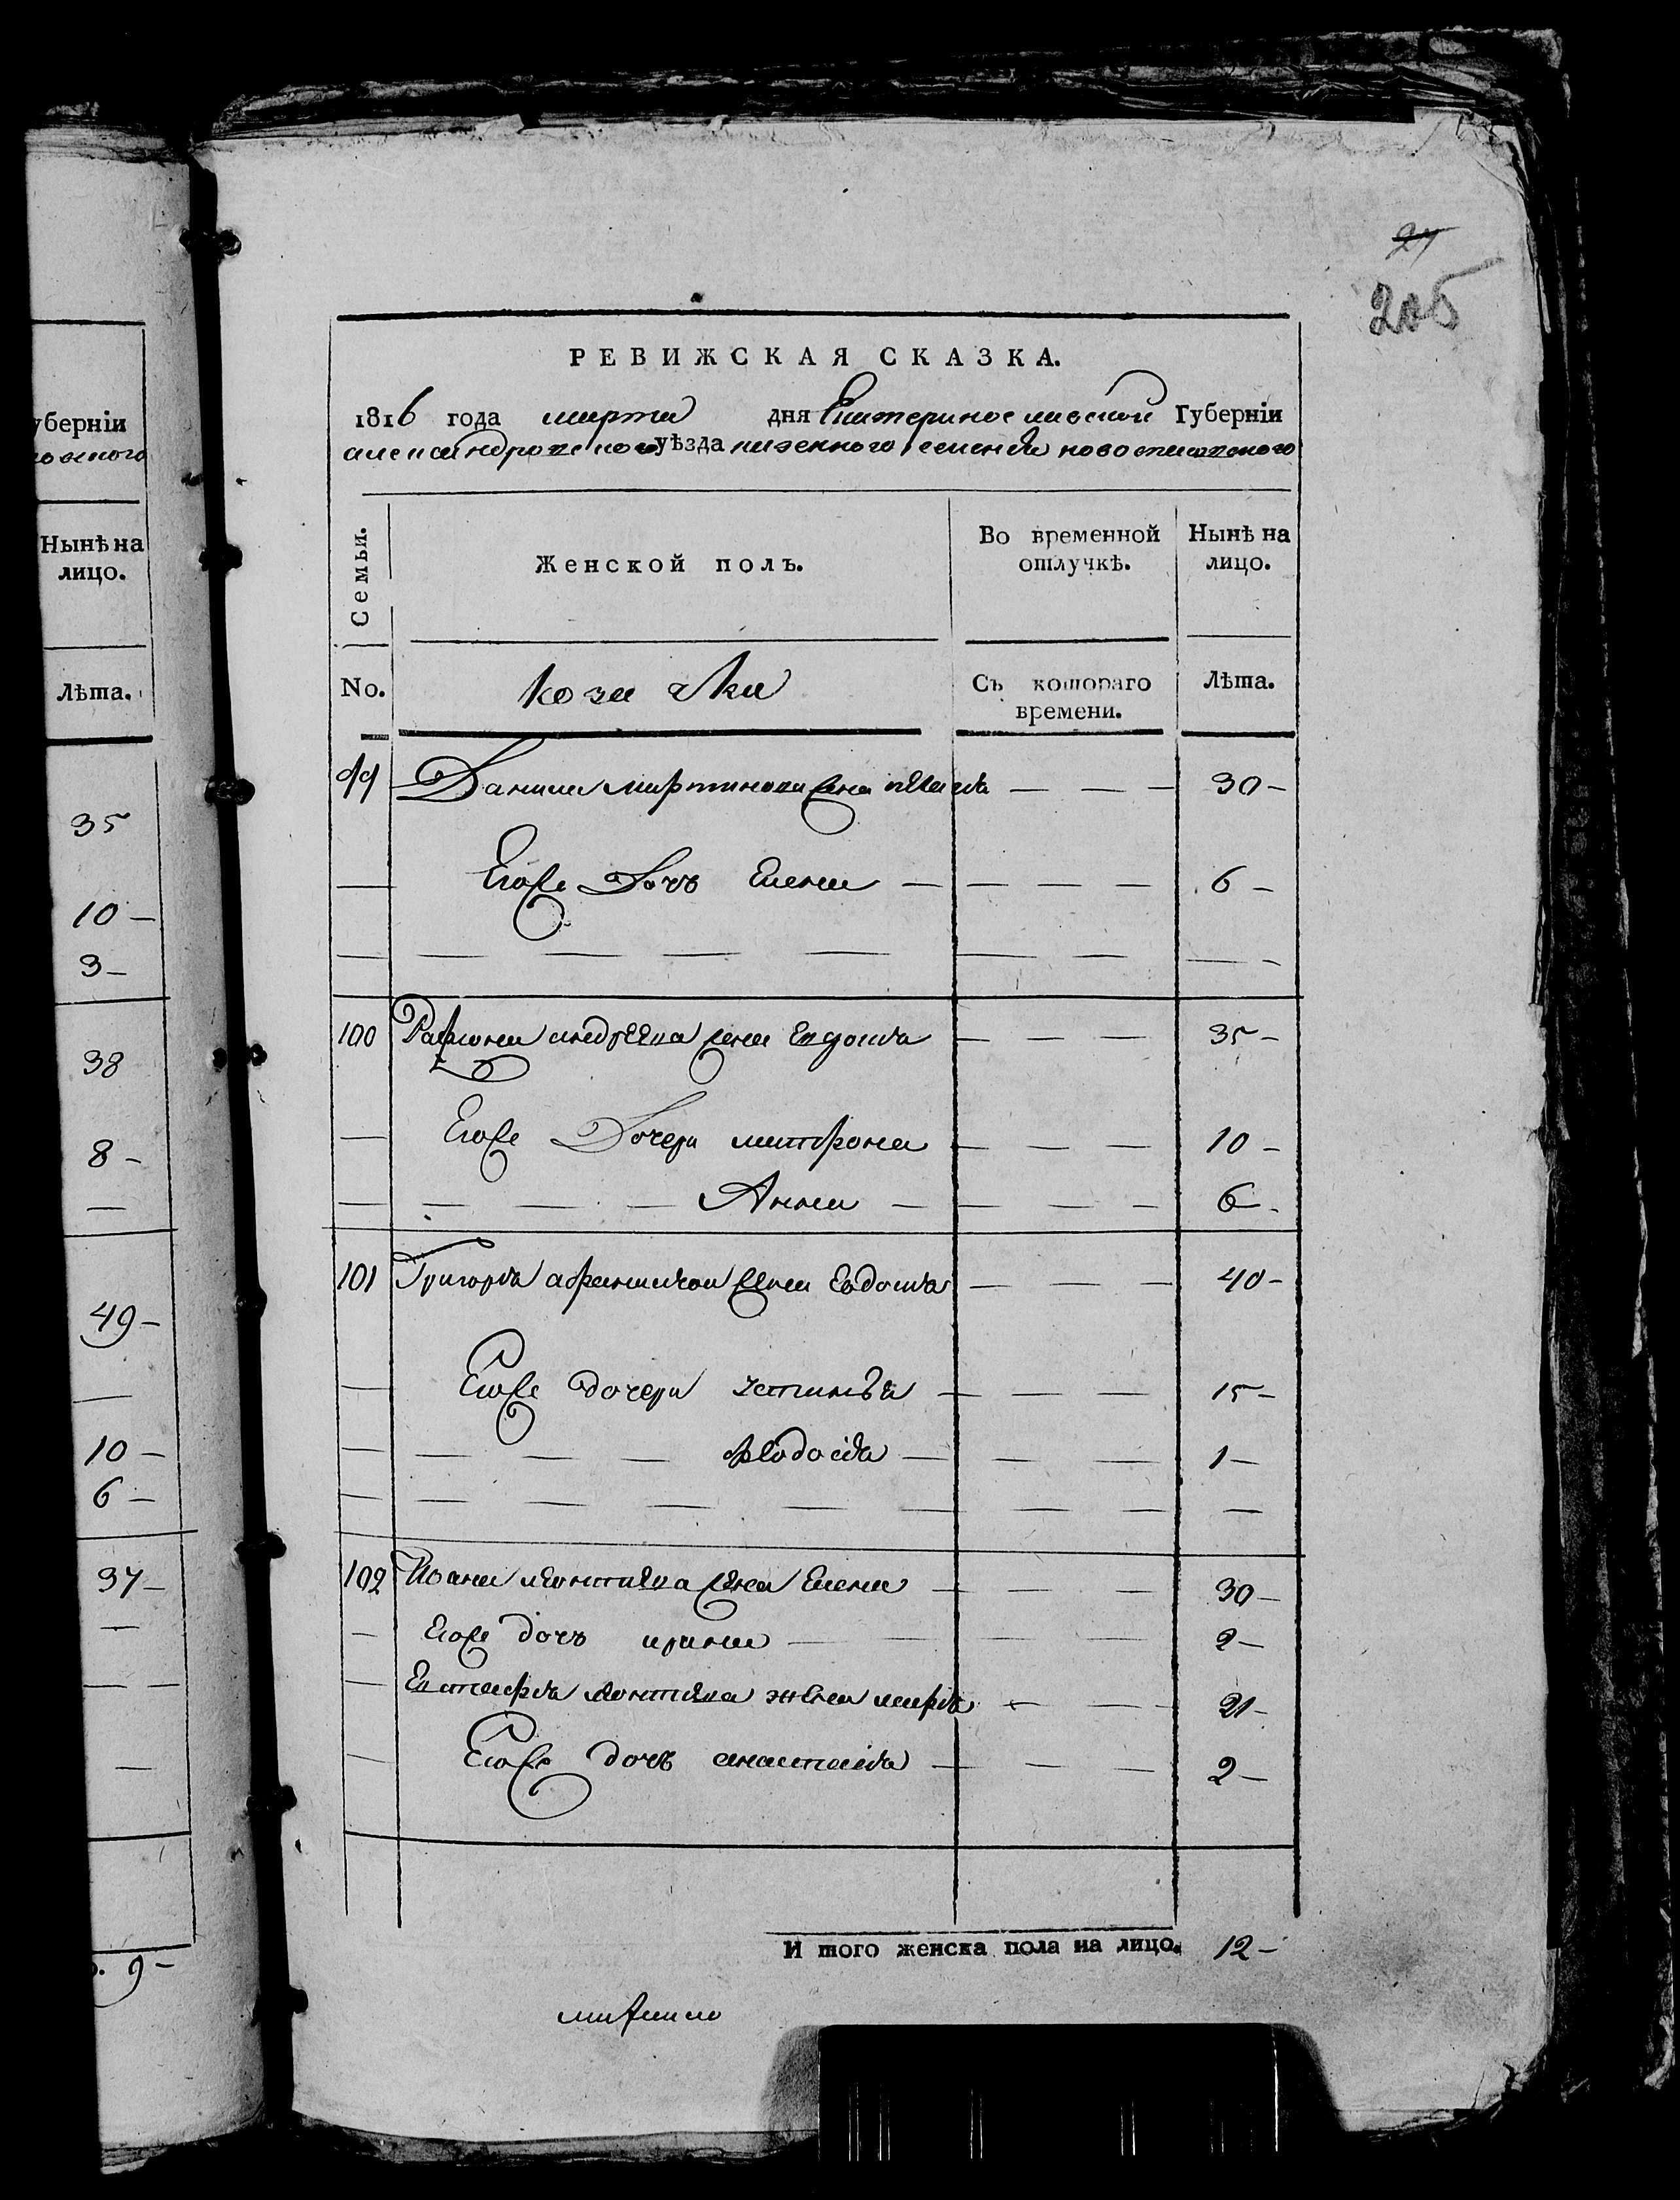 уберніи
ровского
Нынѣ на
лицо.
Лѣта.
35
10 —
3 —
38
8 —
49 —
10 —
6 —
37 —
9 —
27
205
РЕВИЖСКАЯ СКАЗКА.
1816 года марта дня Екатеринославской Губерніи
александровского уѣзда казенного селенія новониколаевского
Семьи.
Женской полъ.
Во временной
отлучкѣ.
Нынѣ на
лицо.
No.
козачки
Съ котораго
времени.
Лѣта.
99 Данила мартинова жена — — — 30 —
— Егоже Дочъ Елена — — — — 6 —
— — — — — — — — —
100 андреева жена Евдокия — — — 35 —
— Егоже Дочери матрона — — — 10 —
— — — — Анна — — — — 6 —
101 Григория жена Евдокия — — — 40 —
— Егоже дочери устинья — — — 15 —
— — — — феодосия — — — — 1 —
— — — — — — — — — —
102 Иоана леонтиева жена Елена — — — 30 —
— Егоже дочъ ирина — — — — 2 —
— Евстафия леонтиева жена мария — — — 21 —
— Егоже дочъ анастасия — — — 2 —
И того женска пола на лицо. 12 —